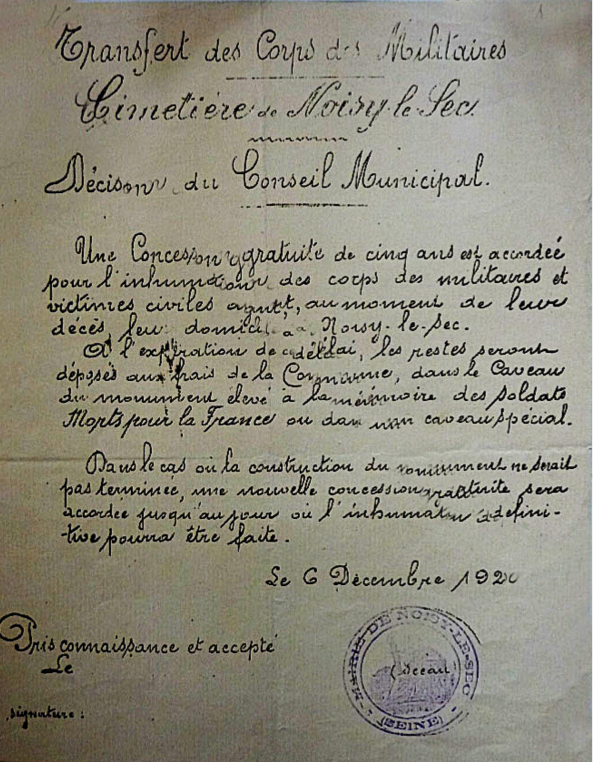 Transfert des Corps des Militaires
Cimetière de Noisy-le-Sec.
Décisions du Conseil Municipal.
Une Concession gratuite de cinq ans est accordée
pour l'inhumation des corps des militaires et
victimes civiles ayant, au moment de leur
décès, leur domicile à Noisy-le-Sec.
A l'expiration de ce délai, les restes seront
déposés aux frais de la Commune, dans le Caveau
du monument élevé à la mémoire des Soldats
Morts pour la France ou dans un caveau spécial.
Dans le cas où la construction du monument ne serait
pas terminée, une nouvelle concession gratuite sera
accordée jusqu'au jour où l'inhumation défini-
-tive pourra être faite.
Le 6 Décembre 1920
Pris connaissance et accepté
Le
signature :
MAIRIE DE NOISY-LE-SEC
(SEINE)